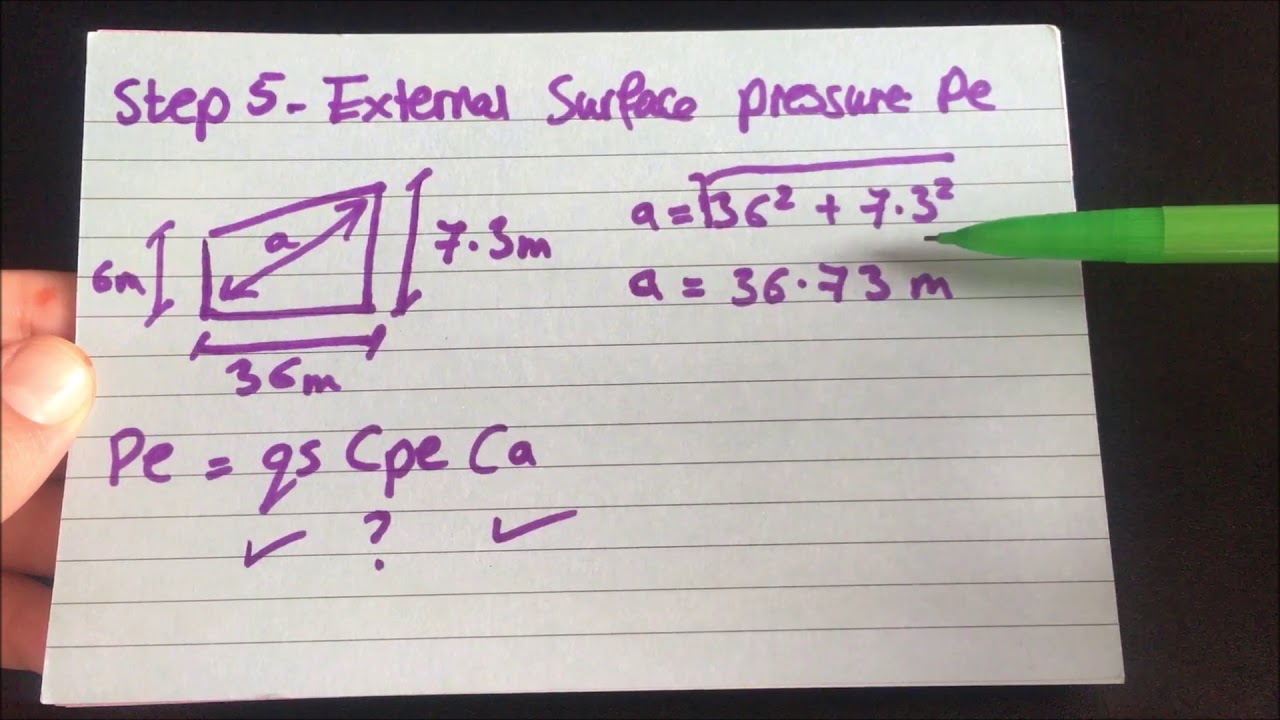 Step 5- External Surface pressure Pe
a
6m
7.3m
36m
a = √36² + 7.3²
a = 36.73 m
Pe = qs Cpe Ca
✓ ? ✓